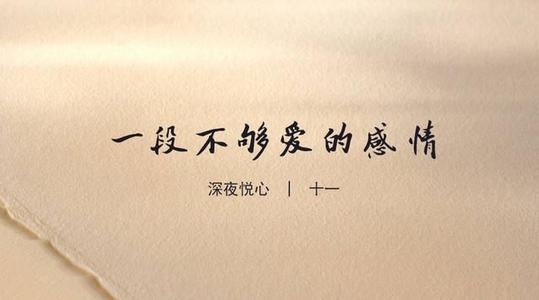 一段不够爱的感情
深夜悦心 | 十一